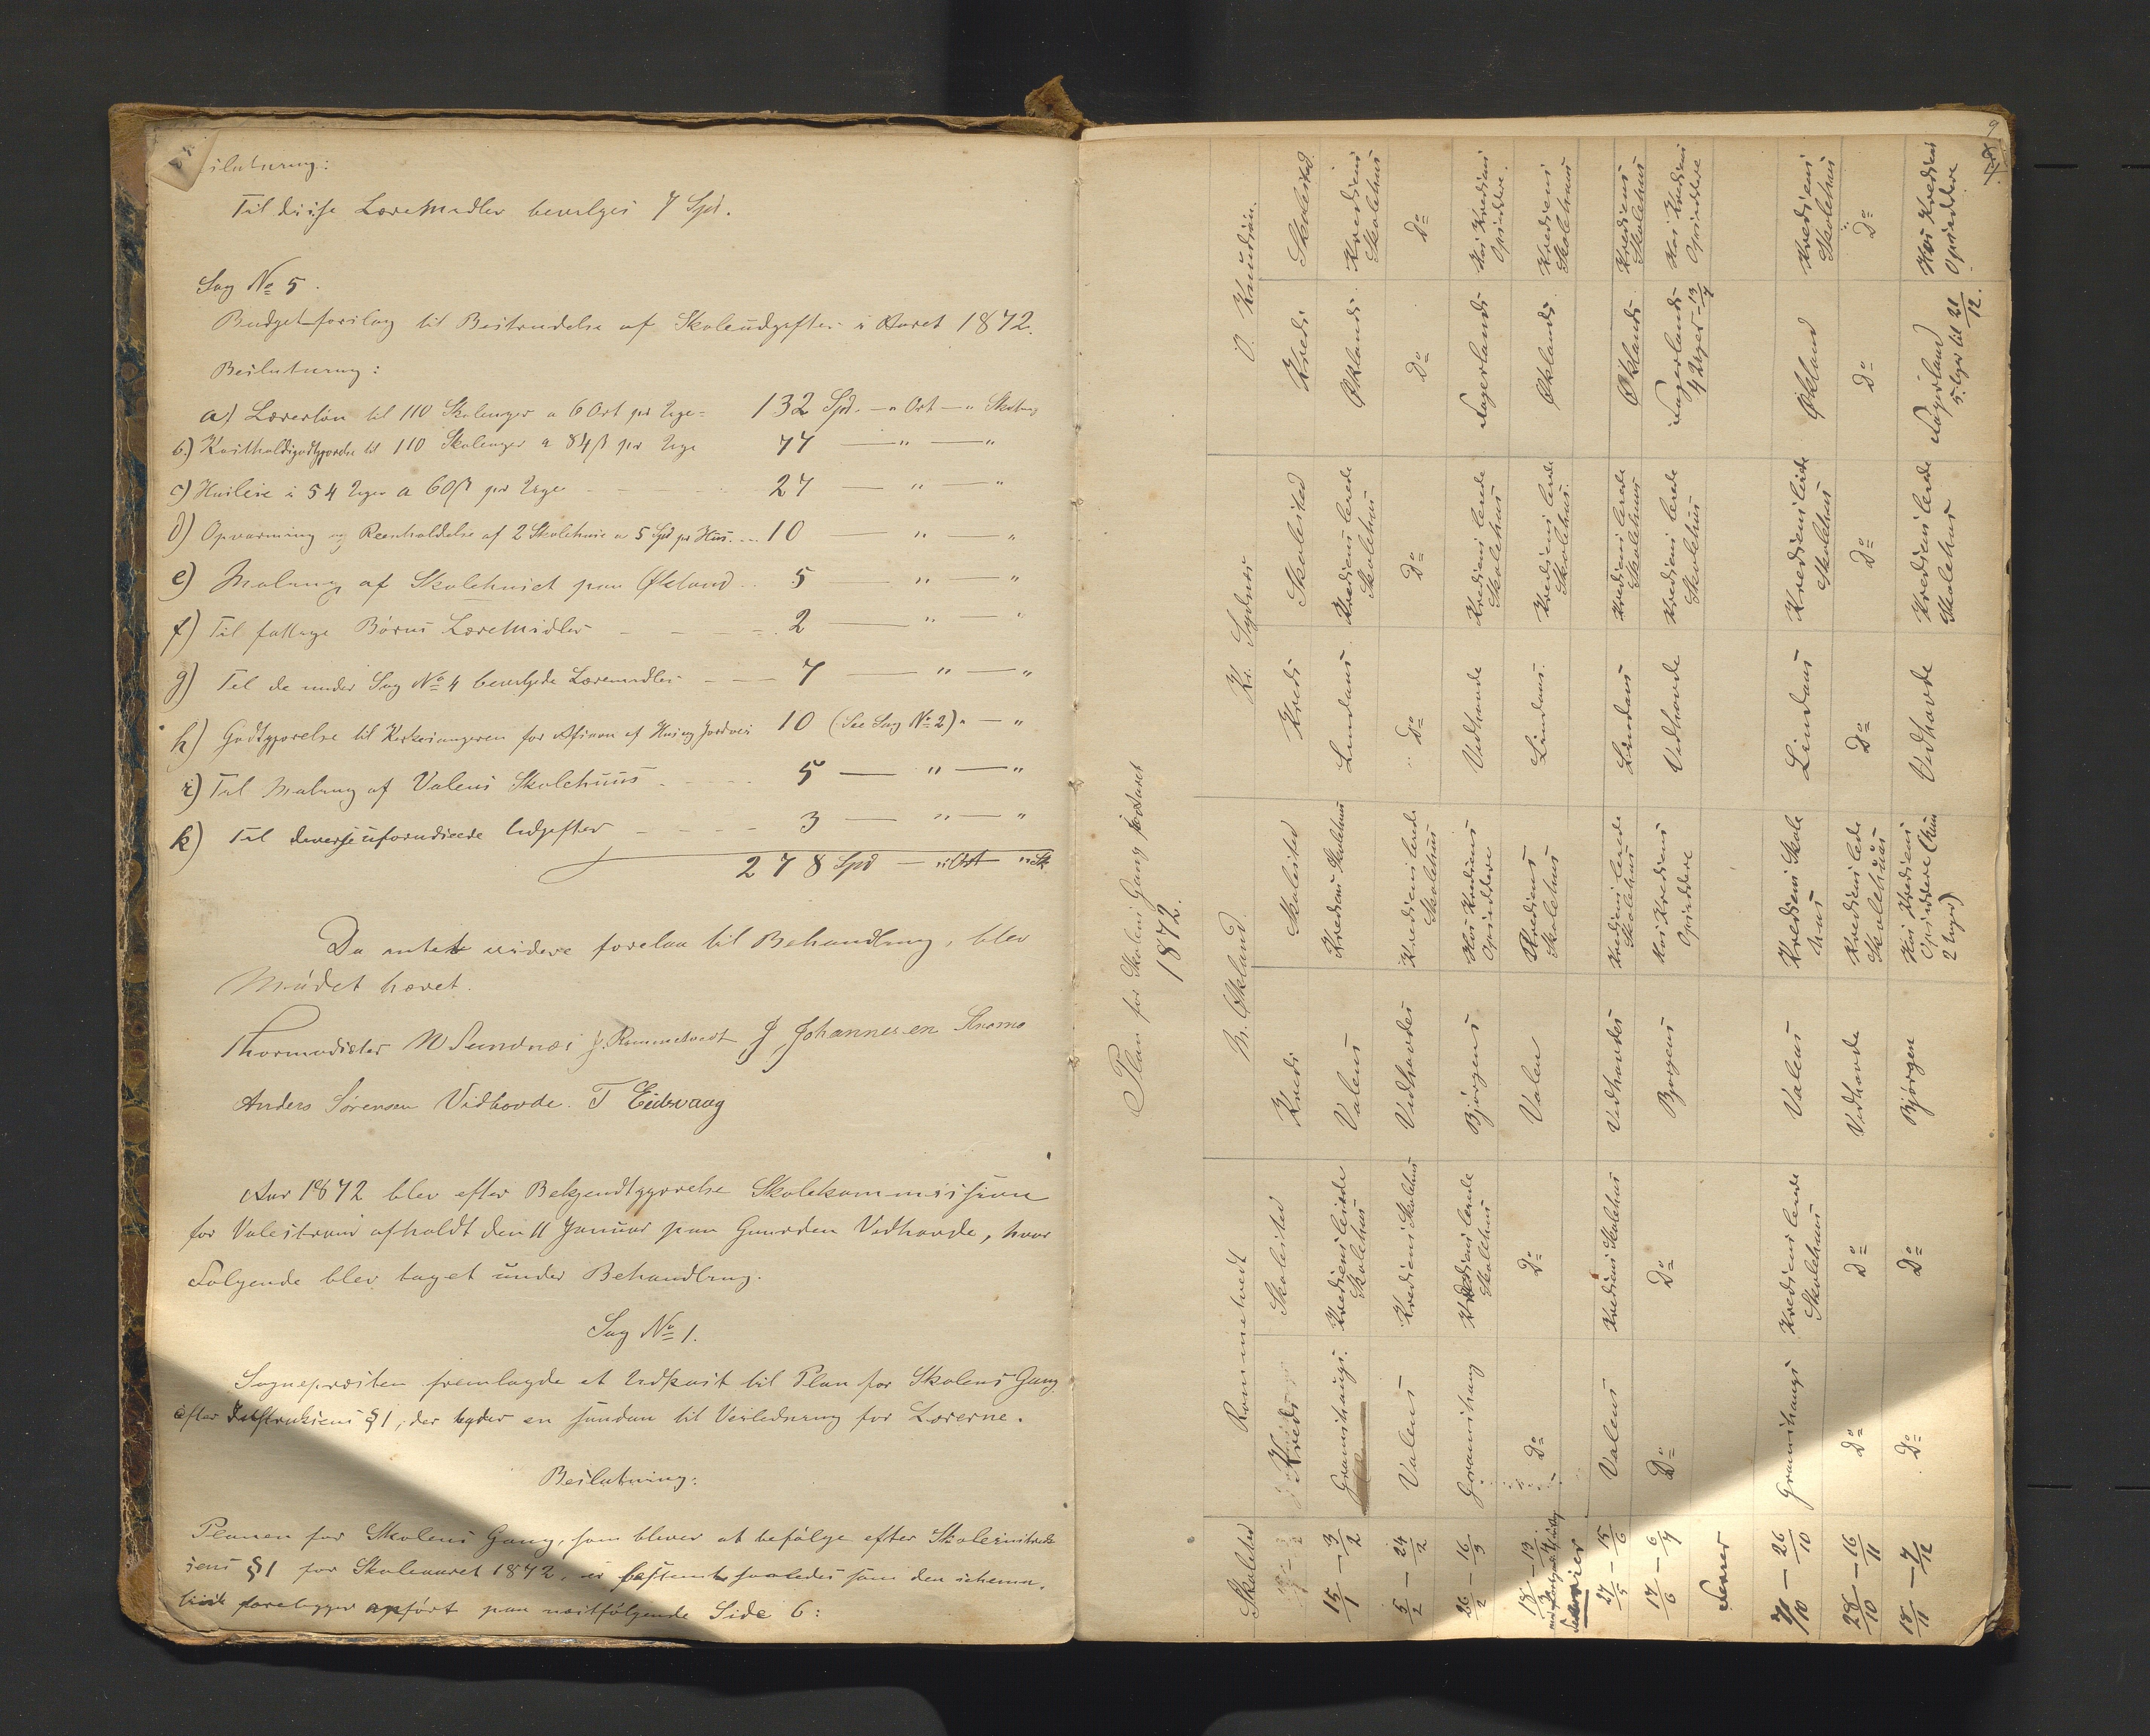 Beslutning:
Til disse Læremidler bevilges 7 Spd.
Sag № 5.
Budgetforslag til Bestridelse af Skoleudgifter i Aaret 1872.
Beslutning:
a) Lærerløn til 110 Skoleuger a 6 Ort pr Uge = 132 Spd. — " Ort — " Skilling
b.) Kostholdsgodtgjørelse til 110 Skoleuger a 84 ß pr Uge 77 — " — "
c) Husleie i 54 Uger a 60 ß pr Uge 27 — " — "
d) Opvarming og Reenholdelse af 2 Skolehuse a 5 Spd pr Hus. 10 — " — "
e) Maling af Skolehuset paa Økland 5 — " — "
f) Til fattige Børns Læremidler 2 — " — "
g) Til de under Sag № 4 bevilgede Læremidler 7 — " — "
h) Godtgjørelse til Kirkesangeren for Afsavn af Hus og Jordvei 10 (See Sag № 2) " — "
i) Til Maling af Valens Skolehuus 5 — " — "
k) Til diverse uforudseede Udgifter 3 — " — "
278 Spd — " Ort " Sk.
Da intet videre forelaa til Behandling, blev
Mødet hævet.
Thormodsæter M Sundnæs J. Rommetvedt J Johannesen
Anders Sørensen Vidhovde. T Eidsvaag
Aar 1872 blev efter Bekjendtgjørelse Skolekommission
for Valestrand afholdt den 11 Januar paa Gaarden Vedhovde, hvor
Følgende blev taget under Behandling.
Sag № 1.
Sognepræsten fremlagde et Udkast til Plan for Skolens Gang
efter Instruksens § 1, der byder en saadan til Veiledning for Lærerne.
Beslutning:
Planen for Skolens Gang, som bliver at befølge efter Skoleinstruk-
sens § 1 for Skoleaaret 1872, er bestemt saaledes som den schema-
tisk forelegger anført paa næstfølgende Side 6:
9
Plan for Skolens Gang for Aaret
1872.
Skoletid Rommetvedt M. Økland Kr. Sydnes O. Knudsen.
Kreds Skolested Kreds Skolested Kreds Skolested Kreds Skolested
15/1 – 3/2 Gramshaugs. Kredsens leiede Skolehus Valens Kredsens Skolehuus Lindaas Kredsens leiede Skolehus Øklands Kredsens Skolehus
5/2 – 24/2 Valens Kredsens Skolehus Vidhovdes Kredsens leiede Skolehus Do Do Do Do
26/2 – 16/3 Gramshaug Kredsens leiede Skolehus Bjørgens Hos Kredsens Opsiddere Vidhovde Kredsens leiede Skolehus Fagerlands Hos Kredsens Opsiddere
18/3 – 13/4 Do Do Valen Kredsens Skolehus Lindaas Kredsens leiede Skolehus Øklands Kredsens Skolehuus
Ferier
27/5 – 15/6 Valens Kredsens Skolehus Vidhovdes Kredsens leiede Skolehus Lindaas Kredsens leiede Skolehuus Øklands Kredsens Skolehus
17/6 – 6/7 Do Do Bjørgens Hos Kredsens Opsiddere Vidhovde Kredsens leiede Skolehus Fagerlands 4 Uger – 13/7 Hos Kredsens Opsiddere
Ferier
7/10 – 26/10 Gramshaugs Kredsens leiede Skolehuus Valens Kredsens Skole huus Lindaas Kredsens leiede Skolehus Økland Kredsens Skolehus
28/10 – 16/11 Do Do Vidhovde Kredsens leiede Skolehuus Do Do Do Do
18/11 – 7/12 Do Do Bjørgen Hos Kredsens Opsiddere (kun 2 Uger) Vidhovde Kredsens leiede Skolehus Fagerland 5 Uger til 21/12. Hos Kredsens Opsiddere